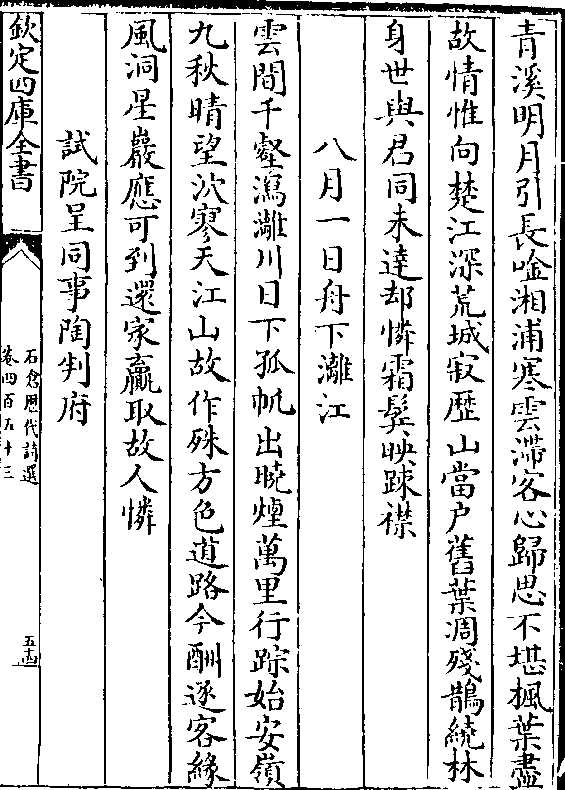 青溪明月引長唫湘浦寒雲滯客心歸思不堪楓葉盡
故情惟向楚江深荒城寂歴山當户舊葉凋殘鵲繞林
身世與君同未達却憐霜鬂映疎襟
八月一日舟下灕江
雲間千壑瀉灕川日下孤帆出曉煙萬里行踪始安嶺
九秋晴望泬寥天江山故作殊方色道路今酬逐客緣
風洞星巖應可到還家贏取故人憐
試院呈同事陶判府
欽定四庫全書
石倉歴代詩選
卷四百五十三
五十四